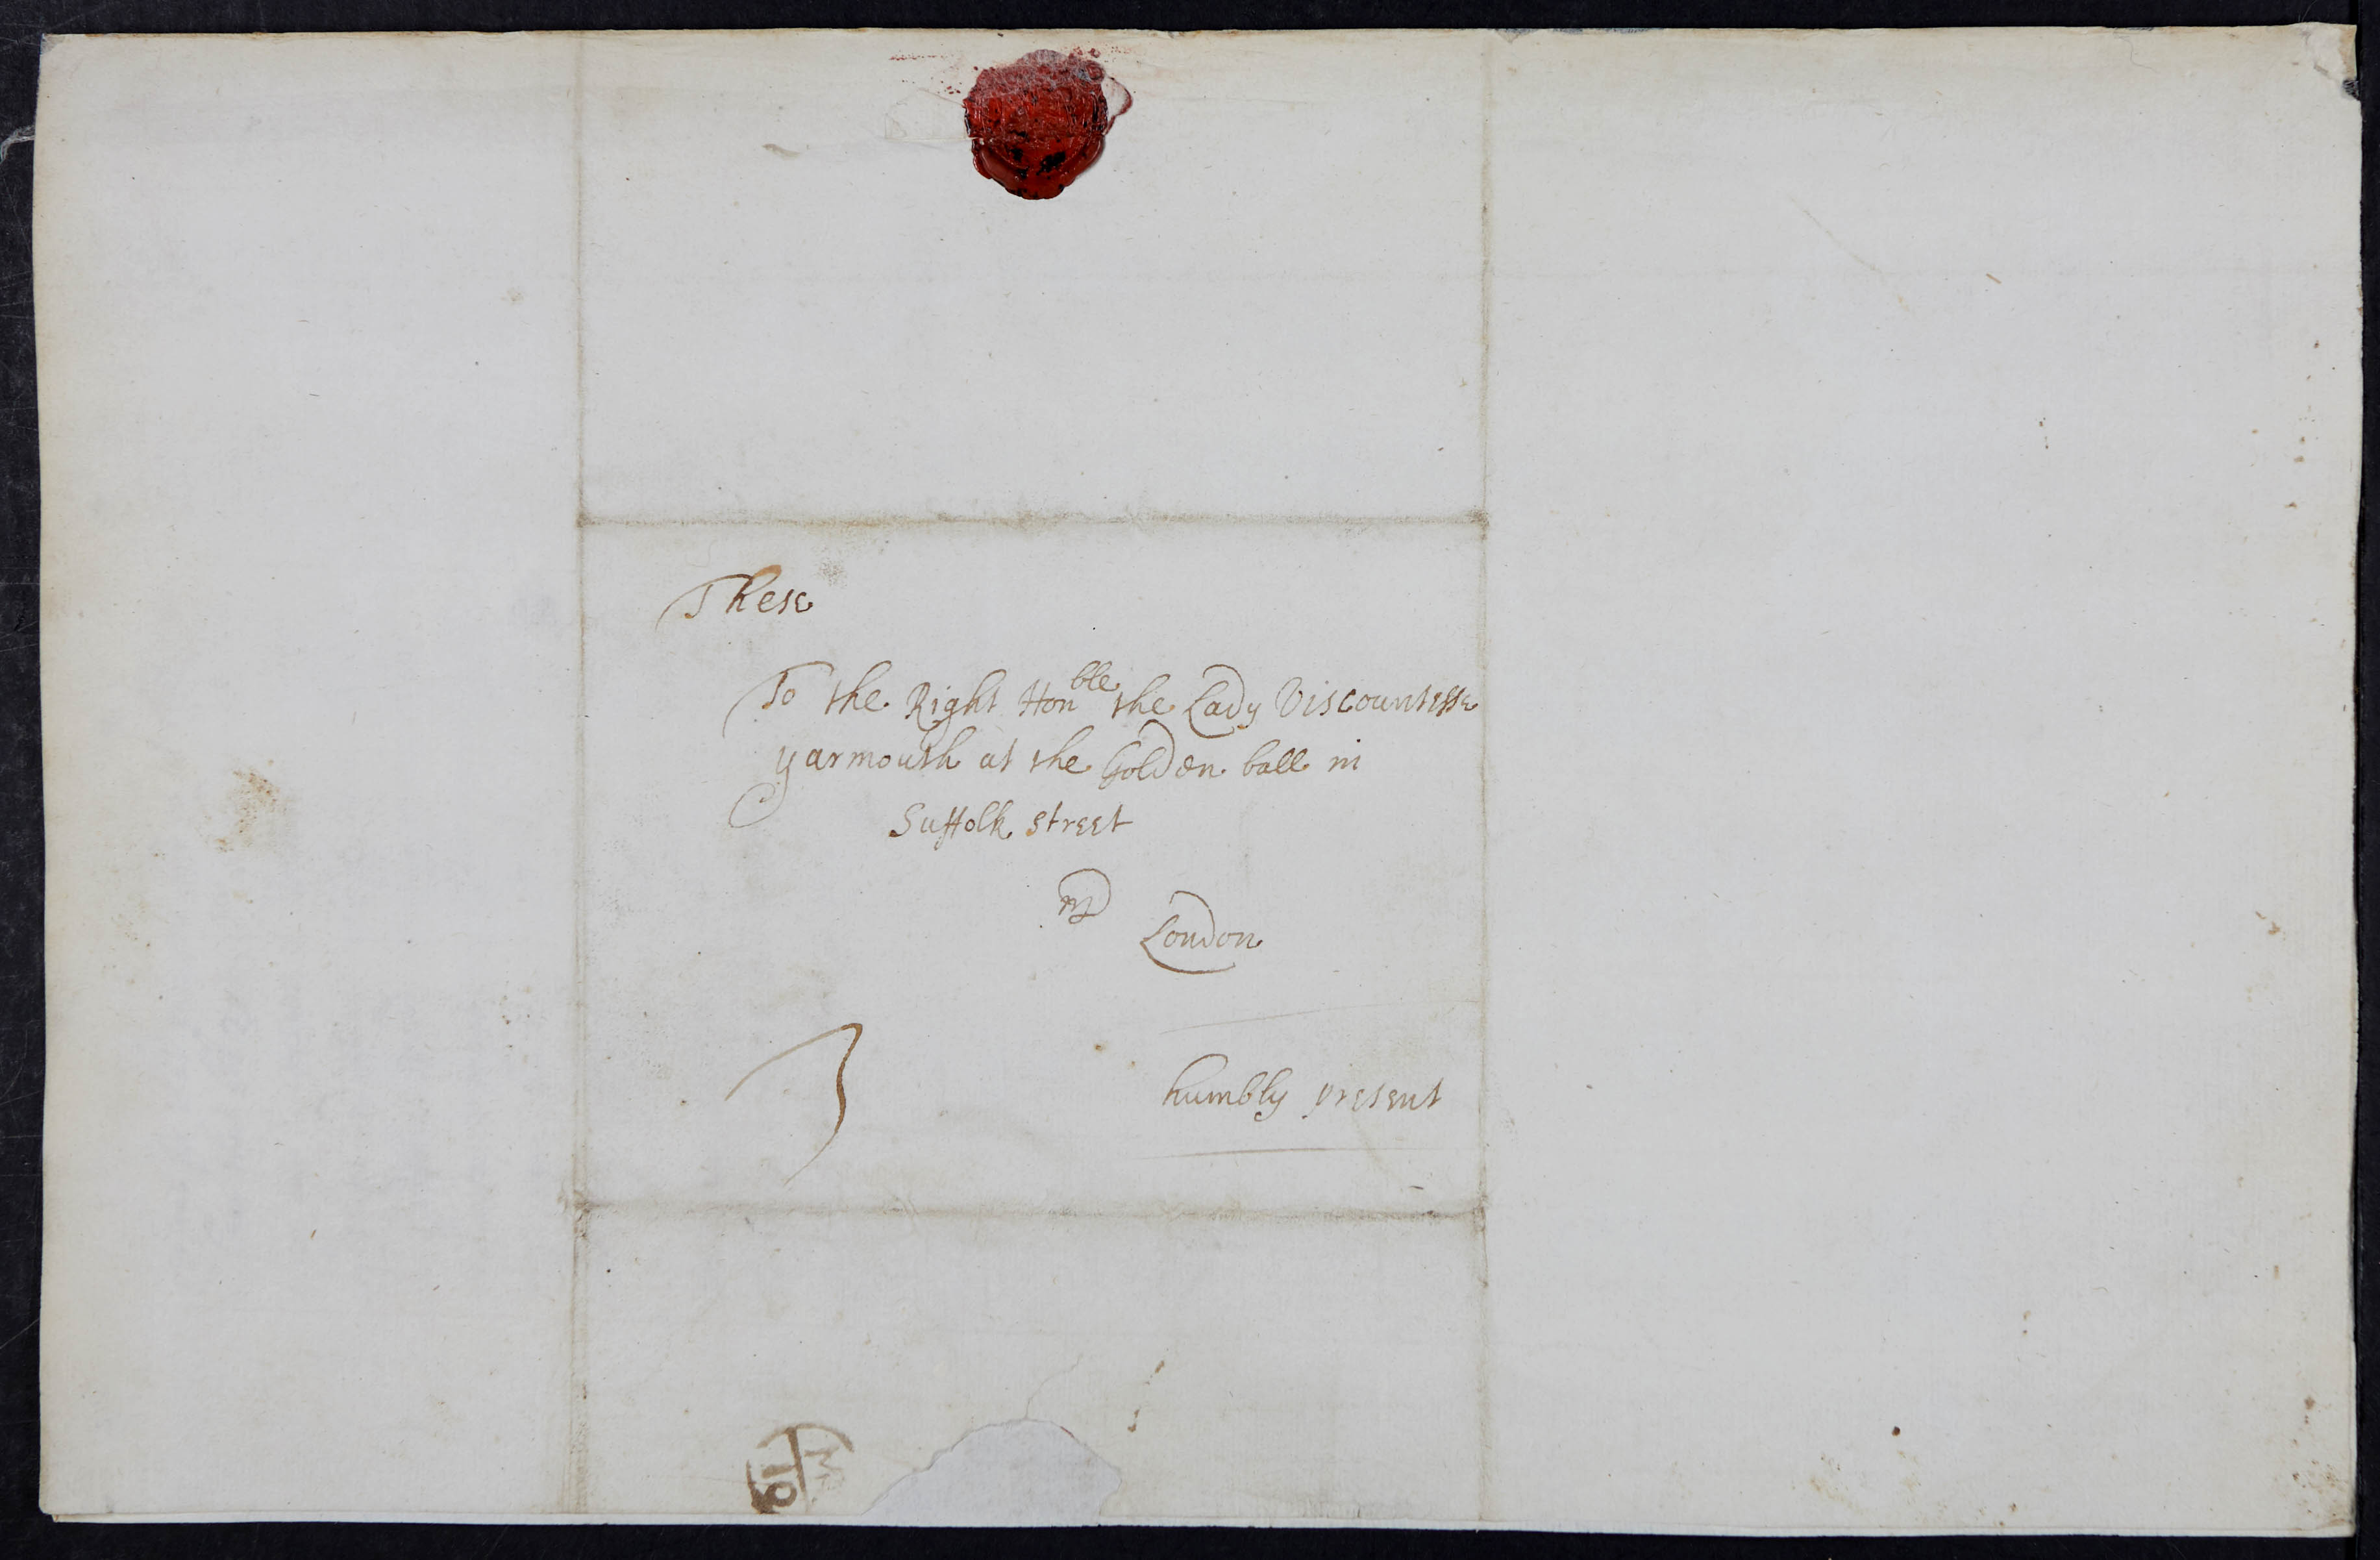 These
To the Right Hon ble the Lady Viscountesse
yarmouth at the Golden ball in
Suffolk street
London
3
humbly present
19